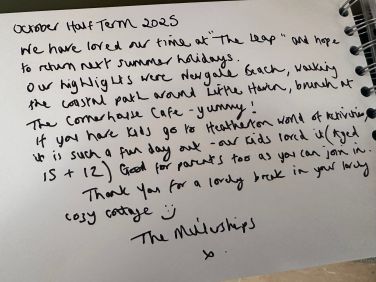 October Half Term 2025
We have loved our time at "The Leap" and hope
to return next summer holidays.
Our highlights were Newgale Beach, walking
the coastal path around Little Haven, brunch at
The Cornerhouse Cafe - yummy!
If you have kids go to Heatherton World of Activities,
it is such a fun day out - our kids loved it (Aged
15 + 12) Good for parents too as you can join in.
Thank you for a lovely break in your lovely
cosy cottage
The
x